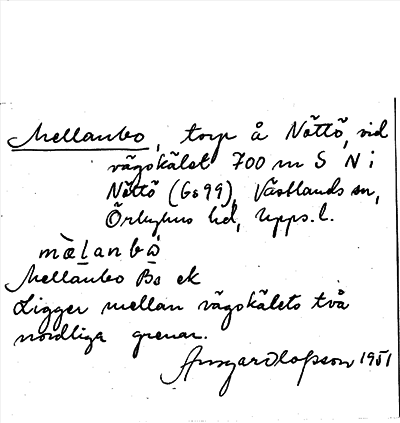 Mellanbo, torp å Nöttö, vid
vägskälet 700 m S N i
Nöttö (Gs 99), Västlands sn,
Örbyhus hd, Upps. l.
mæ̀lanbὼ
Mellanbo Bo ek
Ligger mellan vägskälets två
nordliga grenar.
Ansgar Olofsson 1951